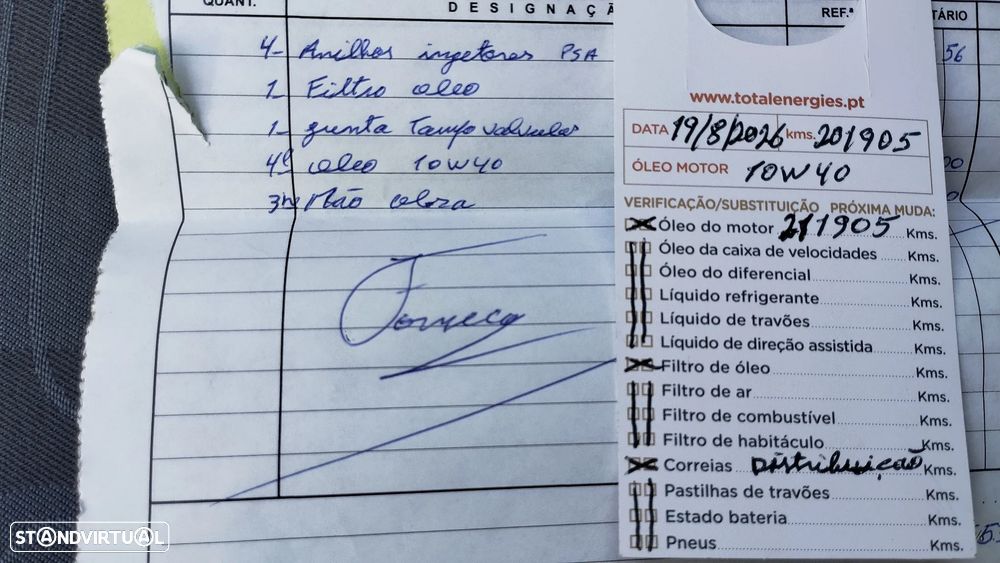 QUANT.
DESIGNAÇÃ
REF.ª
TÁRIO
4- Anilhas injetores PSA
56
1- Filtro oleo
1- junta Tampa valvulas
4L oleo 10W40
3h Mão obra
Fonseca
www.totalenergies.pt
DATA 19/8/2026 kms. 201905
ÓLEO MOTOR 10W40
VERIFICAÇÃO/SUBSTITUIÇÃO PRÓXIMA MUDA:
Óleo do motor 211905 Kms.
Óleo da caixa de velocidades Kms.
Óleo do diferencial Kms.
Líquido refrigerante Kms.
Líquido de travões Kms.
Líquido de direção assistida Kms.
Filtro de óleo Kms.
Filtro de ar Kms.
Filtro de combustível Kms.
Filtro de habitáculo Kms.
Correias Distribuição Kms.
Pastilhas de travões Kms.
Estado bateria Kms.
Pneus Kms.
STANDVIRTUAL